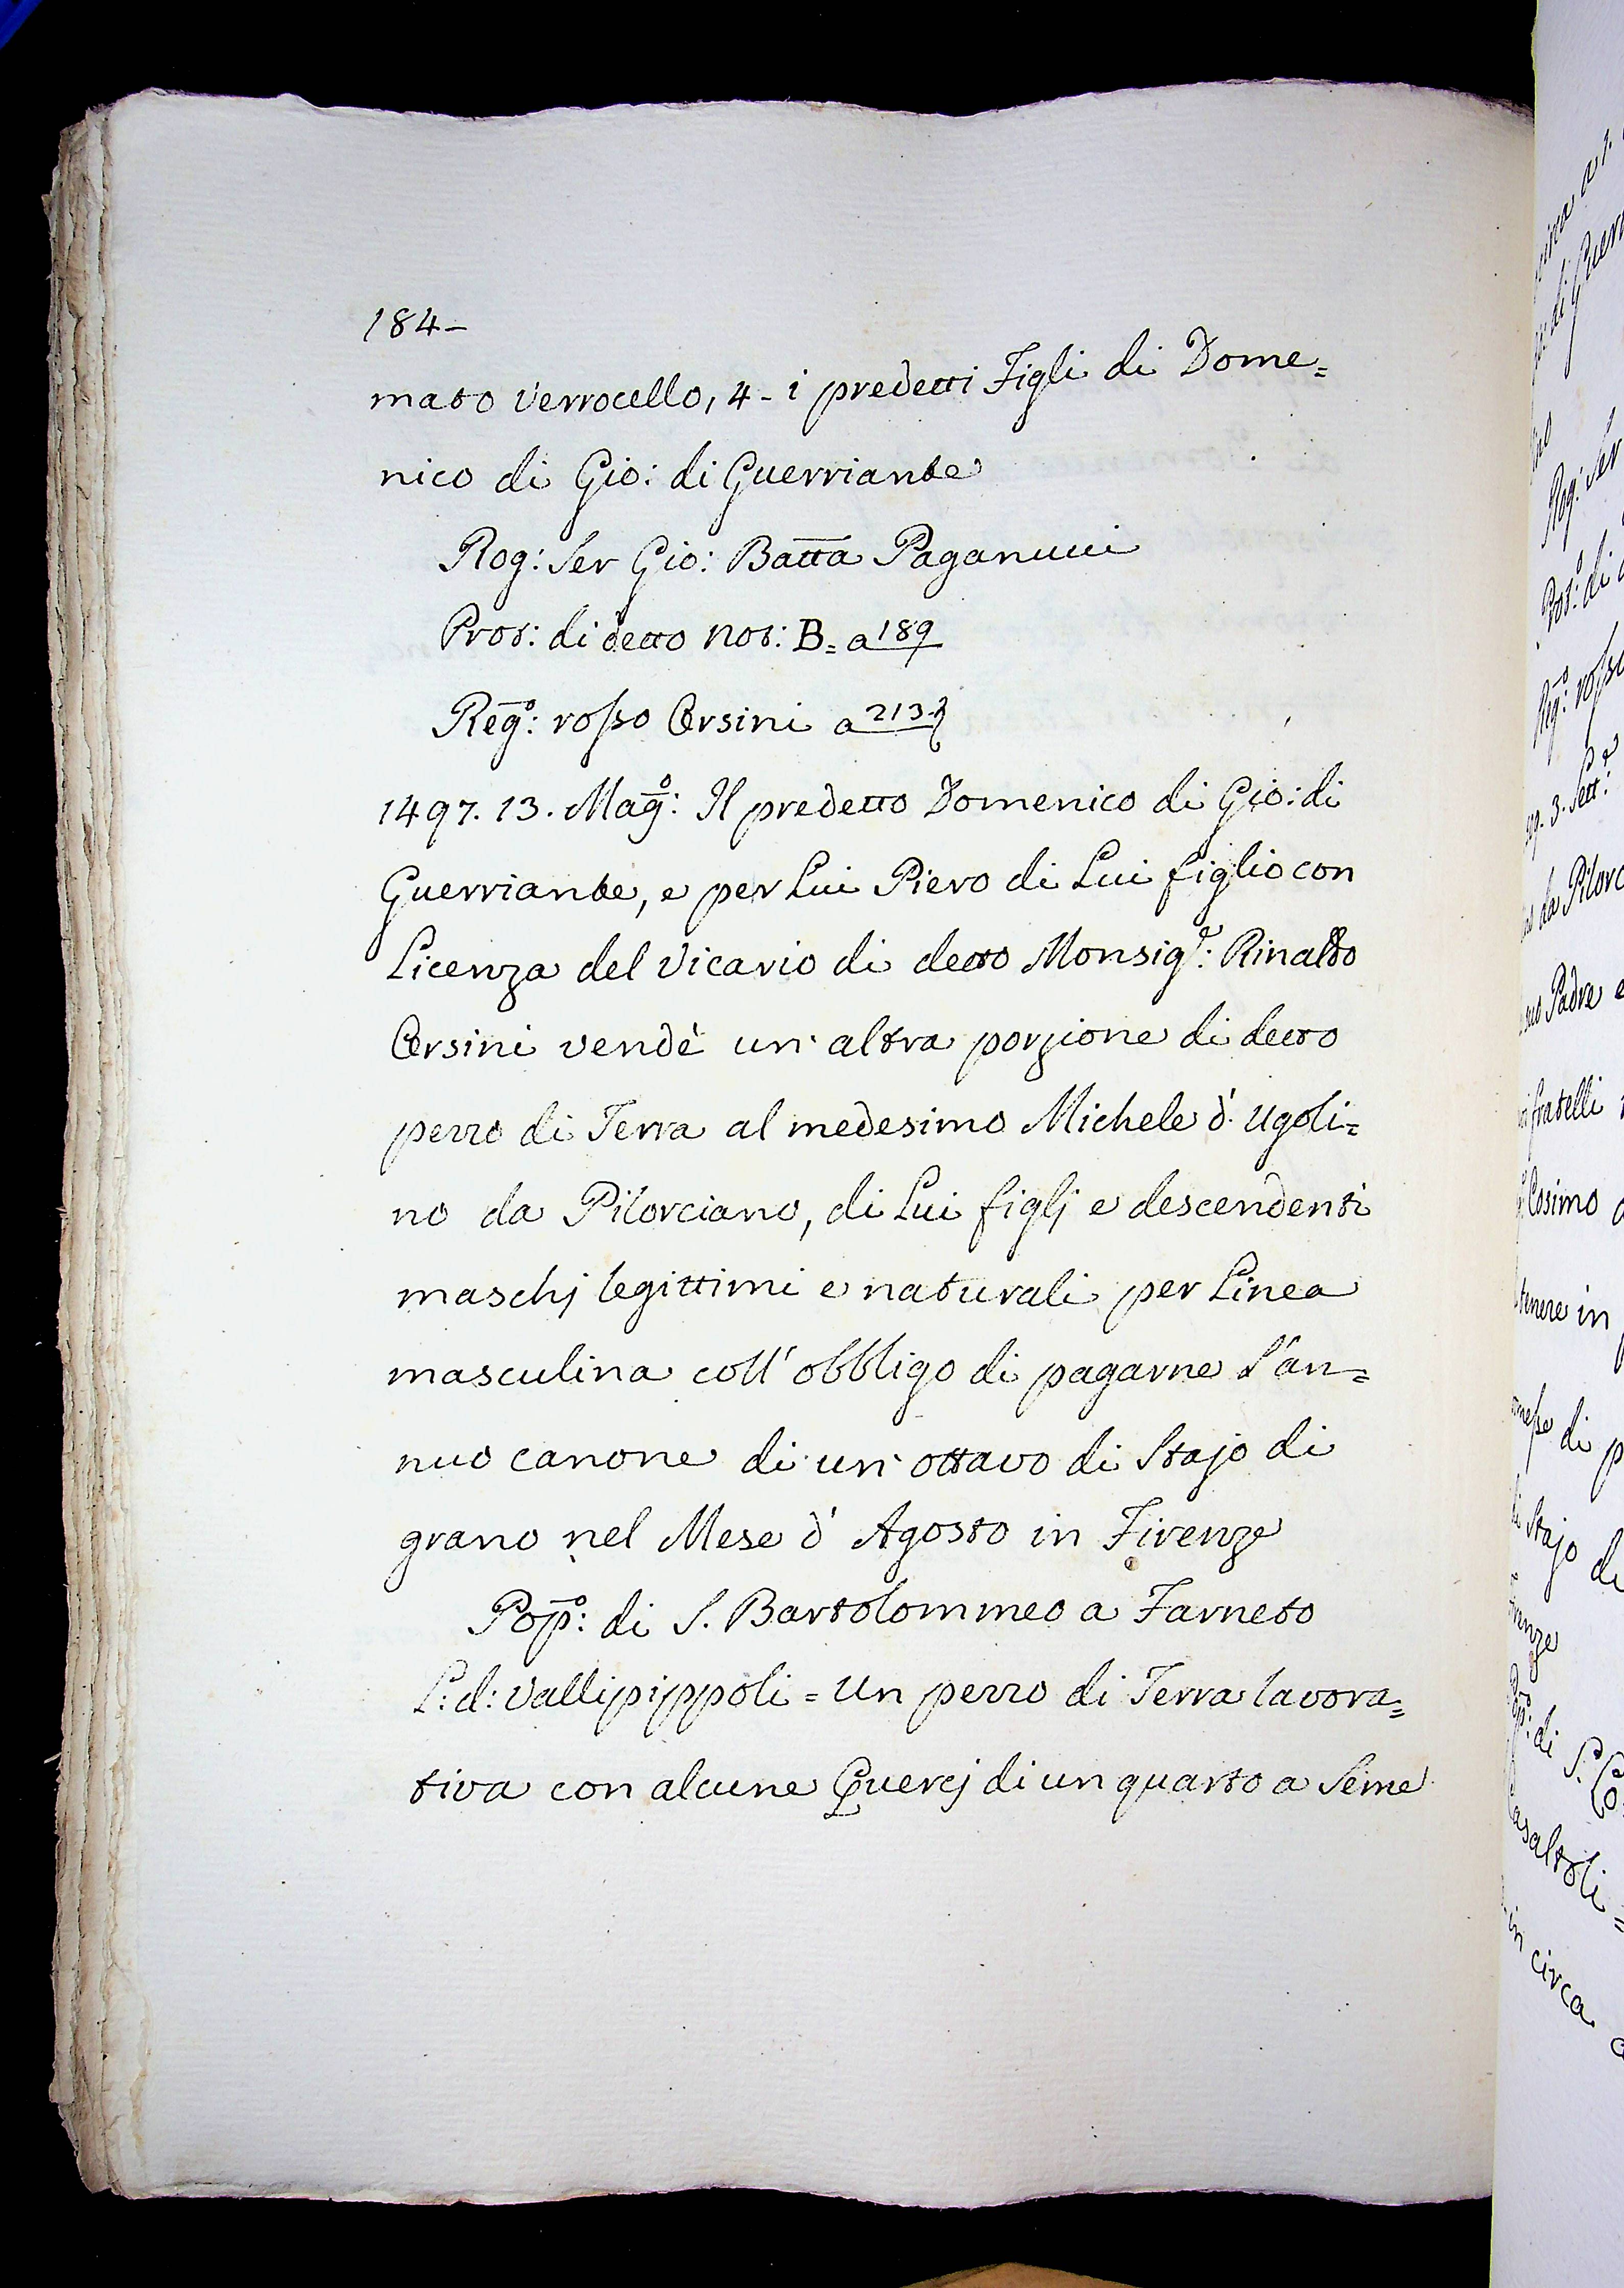 184-
mato Verrocello, 4- i predetti Figli di Dome=
nico di Gio: di Guerriante
Rog: Ser Gio: Batta Paganucci
Prot: di detto Not: B= a 189
Reg.º: rosso Orsini a 213.
1497. 13. Mag.º: Il predetto Domenico di Gio: di
Guerriante, e per Lui Piero di Lui figlio con
Licenza del Vicario di detto Monsig.r: Rinaldo
Orsini vendè un' altra porzione di detto
pezzo di Terra al medesimo Michele d' Ugoli=
no da Pilorciano, di Lui figlj e descendenti
maschj legittimi e naturali per Linea
masculina coll' obbligo di pagarne l'an=
nuo canone di un' ottavo di Stajo di
grano nel Mese d' Agosto in Firenze
Pop.º: di S. Bartolommeo a Farneto
L: d: Vallipippoli = Un pezzo di Terra lavora=
tiva con alcune Quercj di un quarto a Seme
Rog: Ser
Prot: di
Reg.º: rosso
3. Sett:
da Pilorc
Padre e
fratelli
Cosimo
tenere in
di p
Stajo di
di S.
in circa